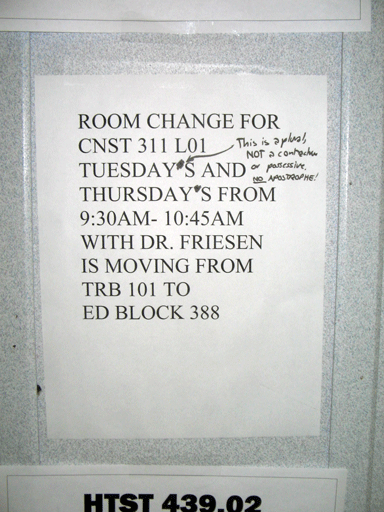 ROOM CHANGE FOR
CNST 311 L01
TUESDAY'S AND
THURSDAY'S FROM
9:30AM- 10:45AM
WITH DR. FRIESEN
IS MOVING FROM
TRB 101 TO
ED BLOCK 388
This is a plural,
NOT a contraction
or possessive.
NO APOSTROPHE!
HTST 439.02